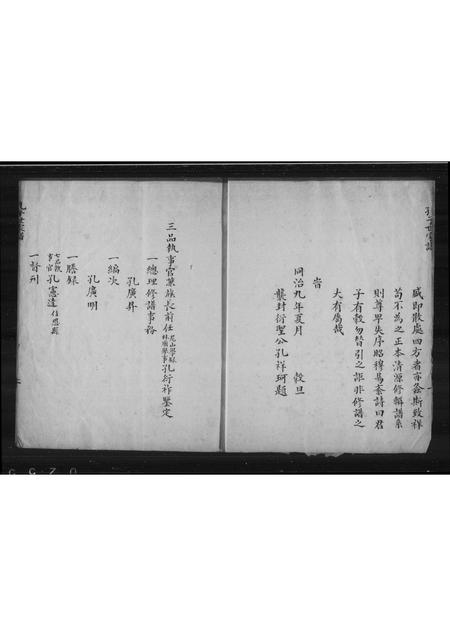 戚即散處四方者亦螽斯致祥
苟不為之正本清源修輯譜系
則尊卑失序昭穆易紊詩曰君
子有穀勿替引之詎非修譜之
大有屬哉
峕
同治九年夏月 穀旦
襲封衍聖公孔祥珂題
三品執事官兼族長前任尼山學錄林廟舉事孔衍祚鑒定
一總理修譜事務
孔廣昇
一編次
孔廣明
一謄錄
七品執事官孔憲達
一督刋